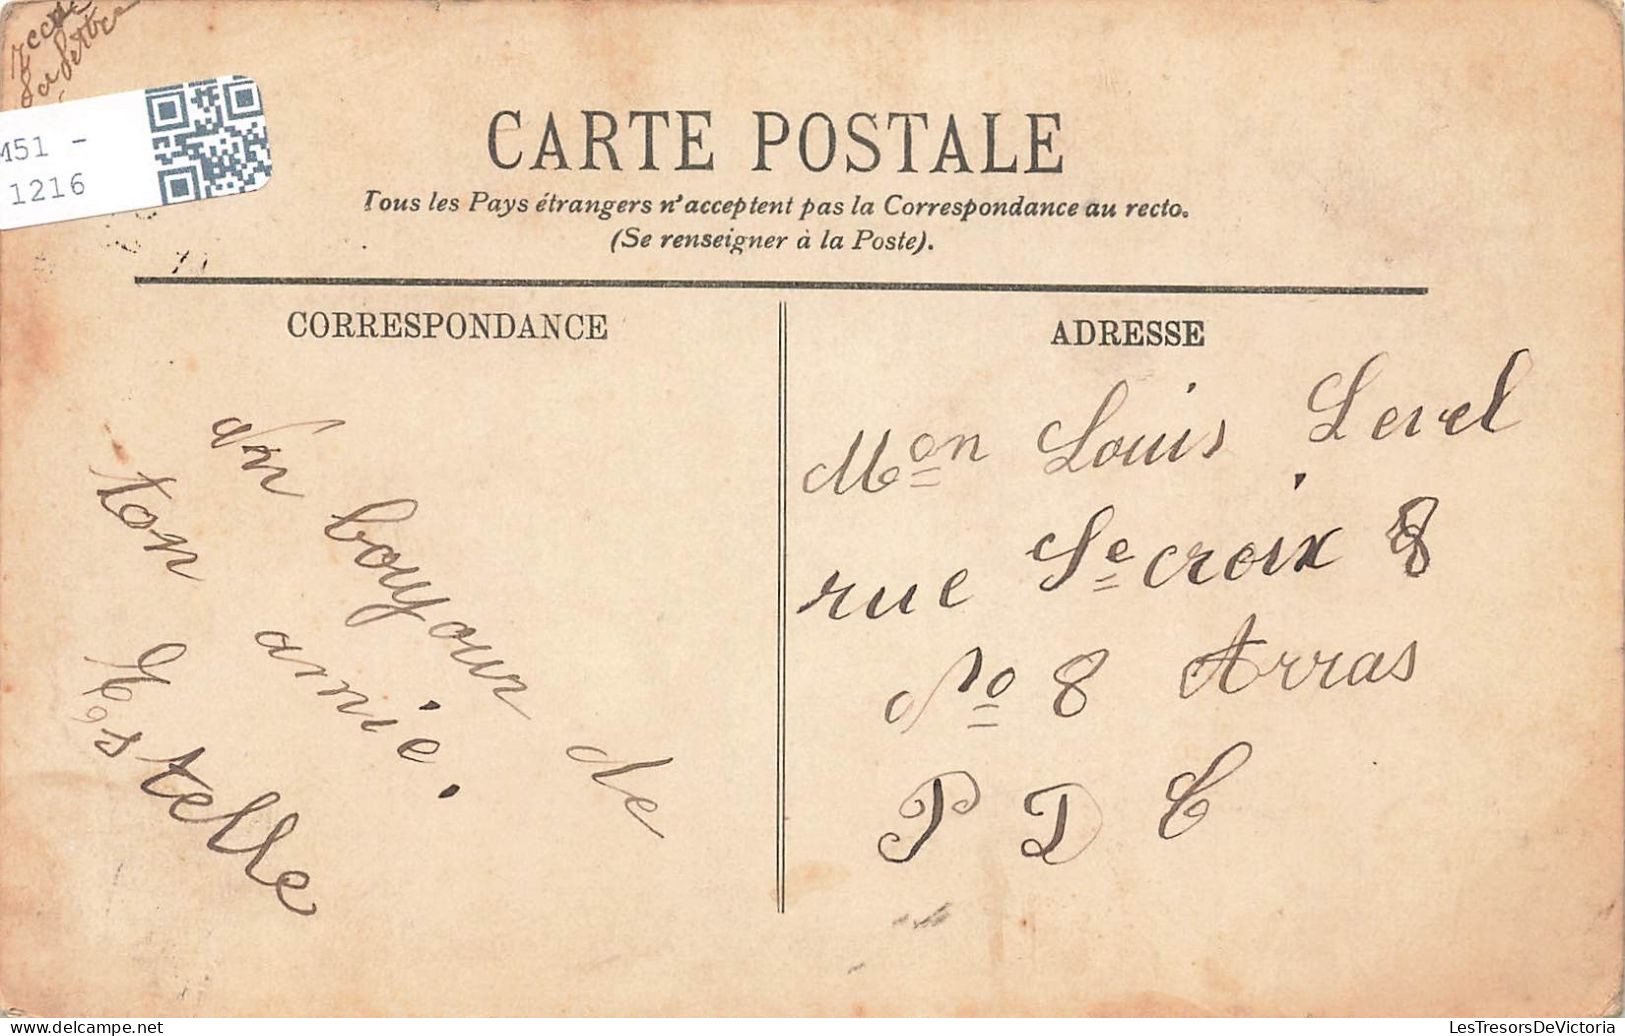 M51 -
1216
CARTE POSTALE
Tous les Pays étrangers n'acceptent pas la Correspondance au recto.
(Se renseigner à la Poste).
CORRESPONDANCE
un boyour de
ton amie.
Estelle
ADRESSE
Mon Louis Level
rue Se croix 8
No 8 Arras
P D C
LesTresorsDeVictoria